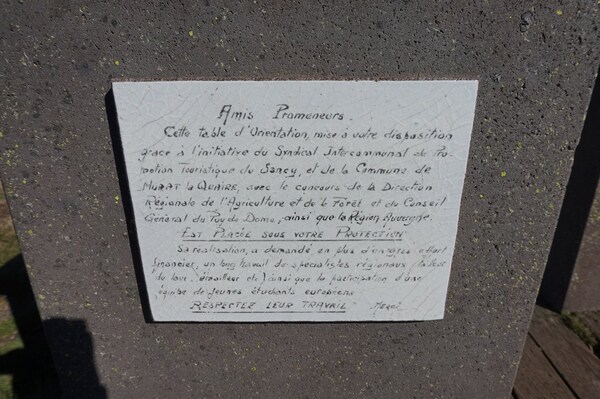 Amis Promeneurs.
Cette table d'Orientation, mise à votre disposition
grâce à l'initiative du Syndicat Intercommunal de Pro-
motion Touristique du Sancy, et de la Commune de
MURAT le QUAIRE, avec le concours de la Direction
Régionale de l'Agriculture et de la Forêt et du Conseil
Général du Puy de Dome, ainsi que la Région Auvergne.
EST PLACÉE SOUS VOTRE PROTECTION
Sa réalisation, a demandé en plus d'un effort
financier, un long travail de spécialistes régionaux,
de lave, émailleur etc) ainsi que la participation d'une
équipe de jeunes étudiants européens
RESPECTEZ LEUR TRAVAIL Merci